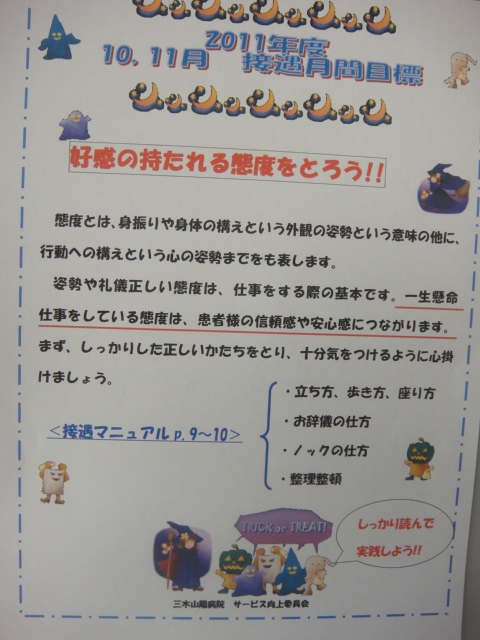 2011年度
10, 11月　接遇月間目標
好感の持たれる態度をとろう!!
態度とは、身振りや身体の構えという外観の姿勢という意味の他に、
行動への構えという心の姿勢までをも表します。
姿勢や礼儀正しい態度は、仕事をする際の基本です。一生懸命
仕事をしている態度は、患者様の信頼感や安心感につながります。
まず、しっかりした正しいかたちをとり、十分気をつけるように心掛
けましょう。
＜接遇マニュアルp.9～10＞
・立ち方、歩き方、座り方
・お辞儀の仕方
・ノックの仕方
・整理整頓
TRICK or TREAT!
しっかり読んで
実践しよう!!
三木山陽病院　サービス向上委員会